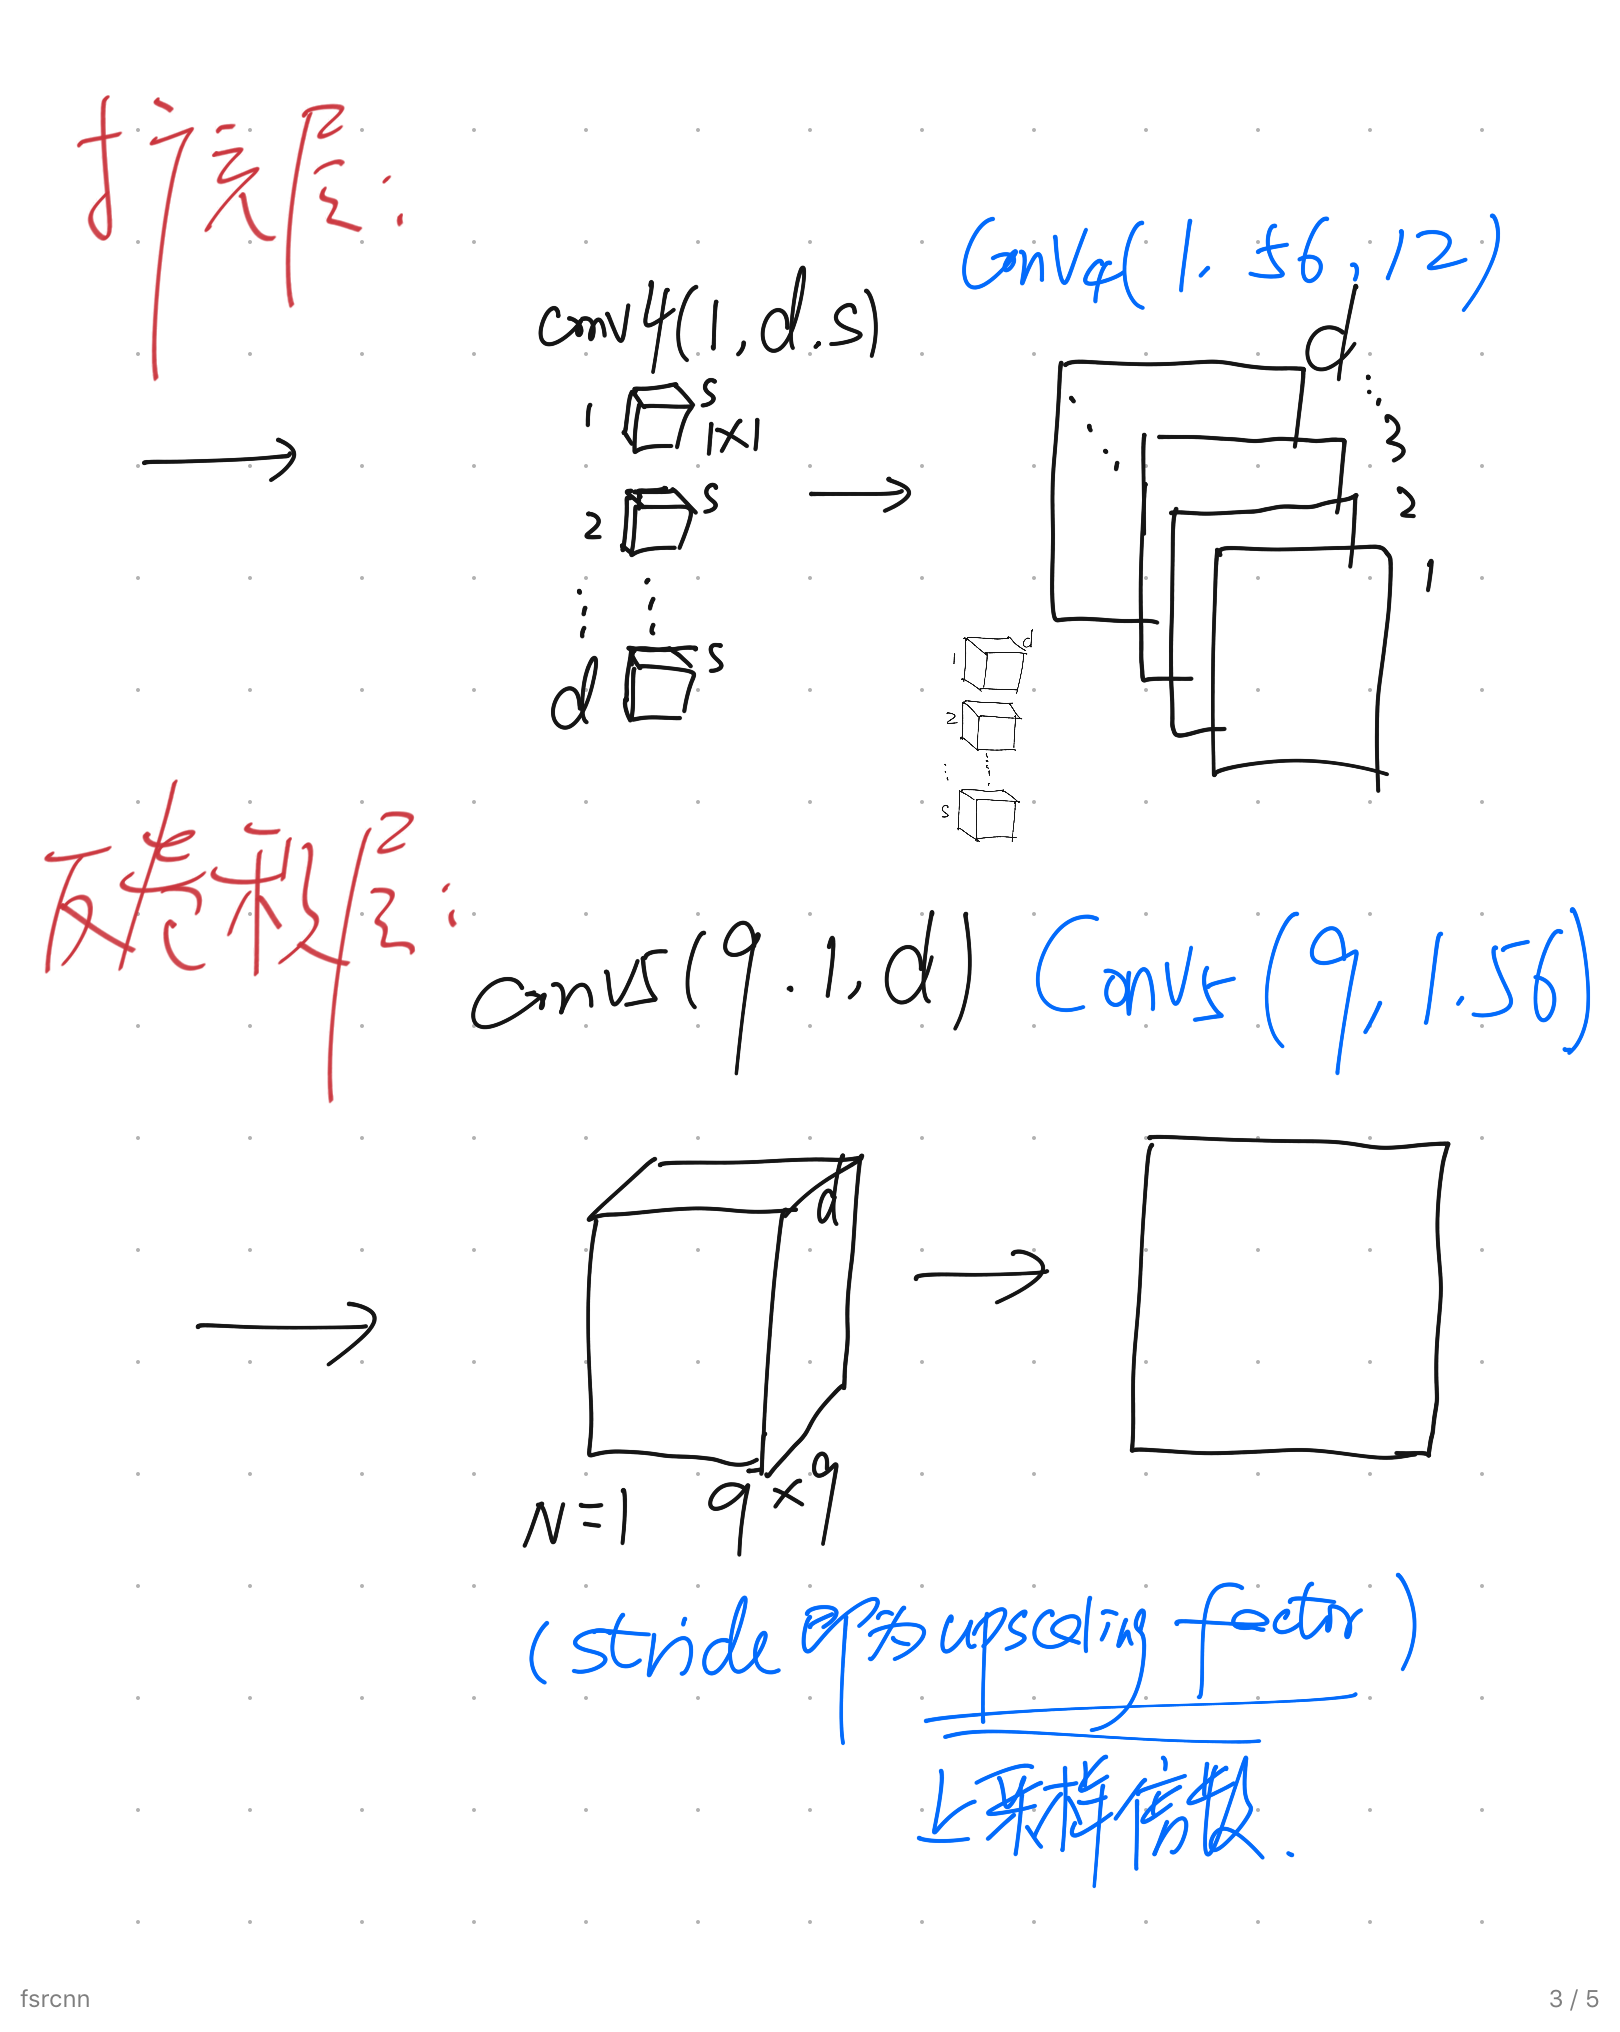 扩充层:
Conv4(1. 56, 12)
conv4(1, d.s)
d
1 s
1×1
3
2 s
2
1
d s
1 d
2
s
反卷积层:
conv5(9.1, d) Conv5(9, 1.56)
d
N=1 9×9
(stride 即为 upscaling factor)
上采样倍数.
fsrcnn 3 / 5